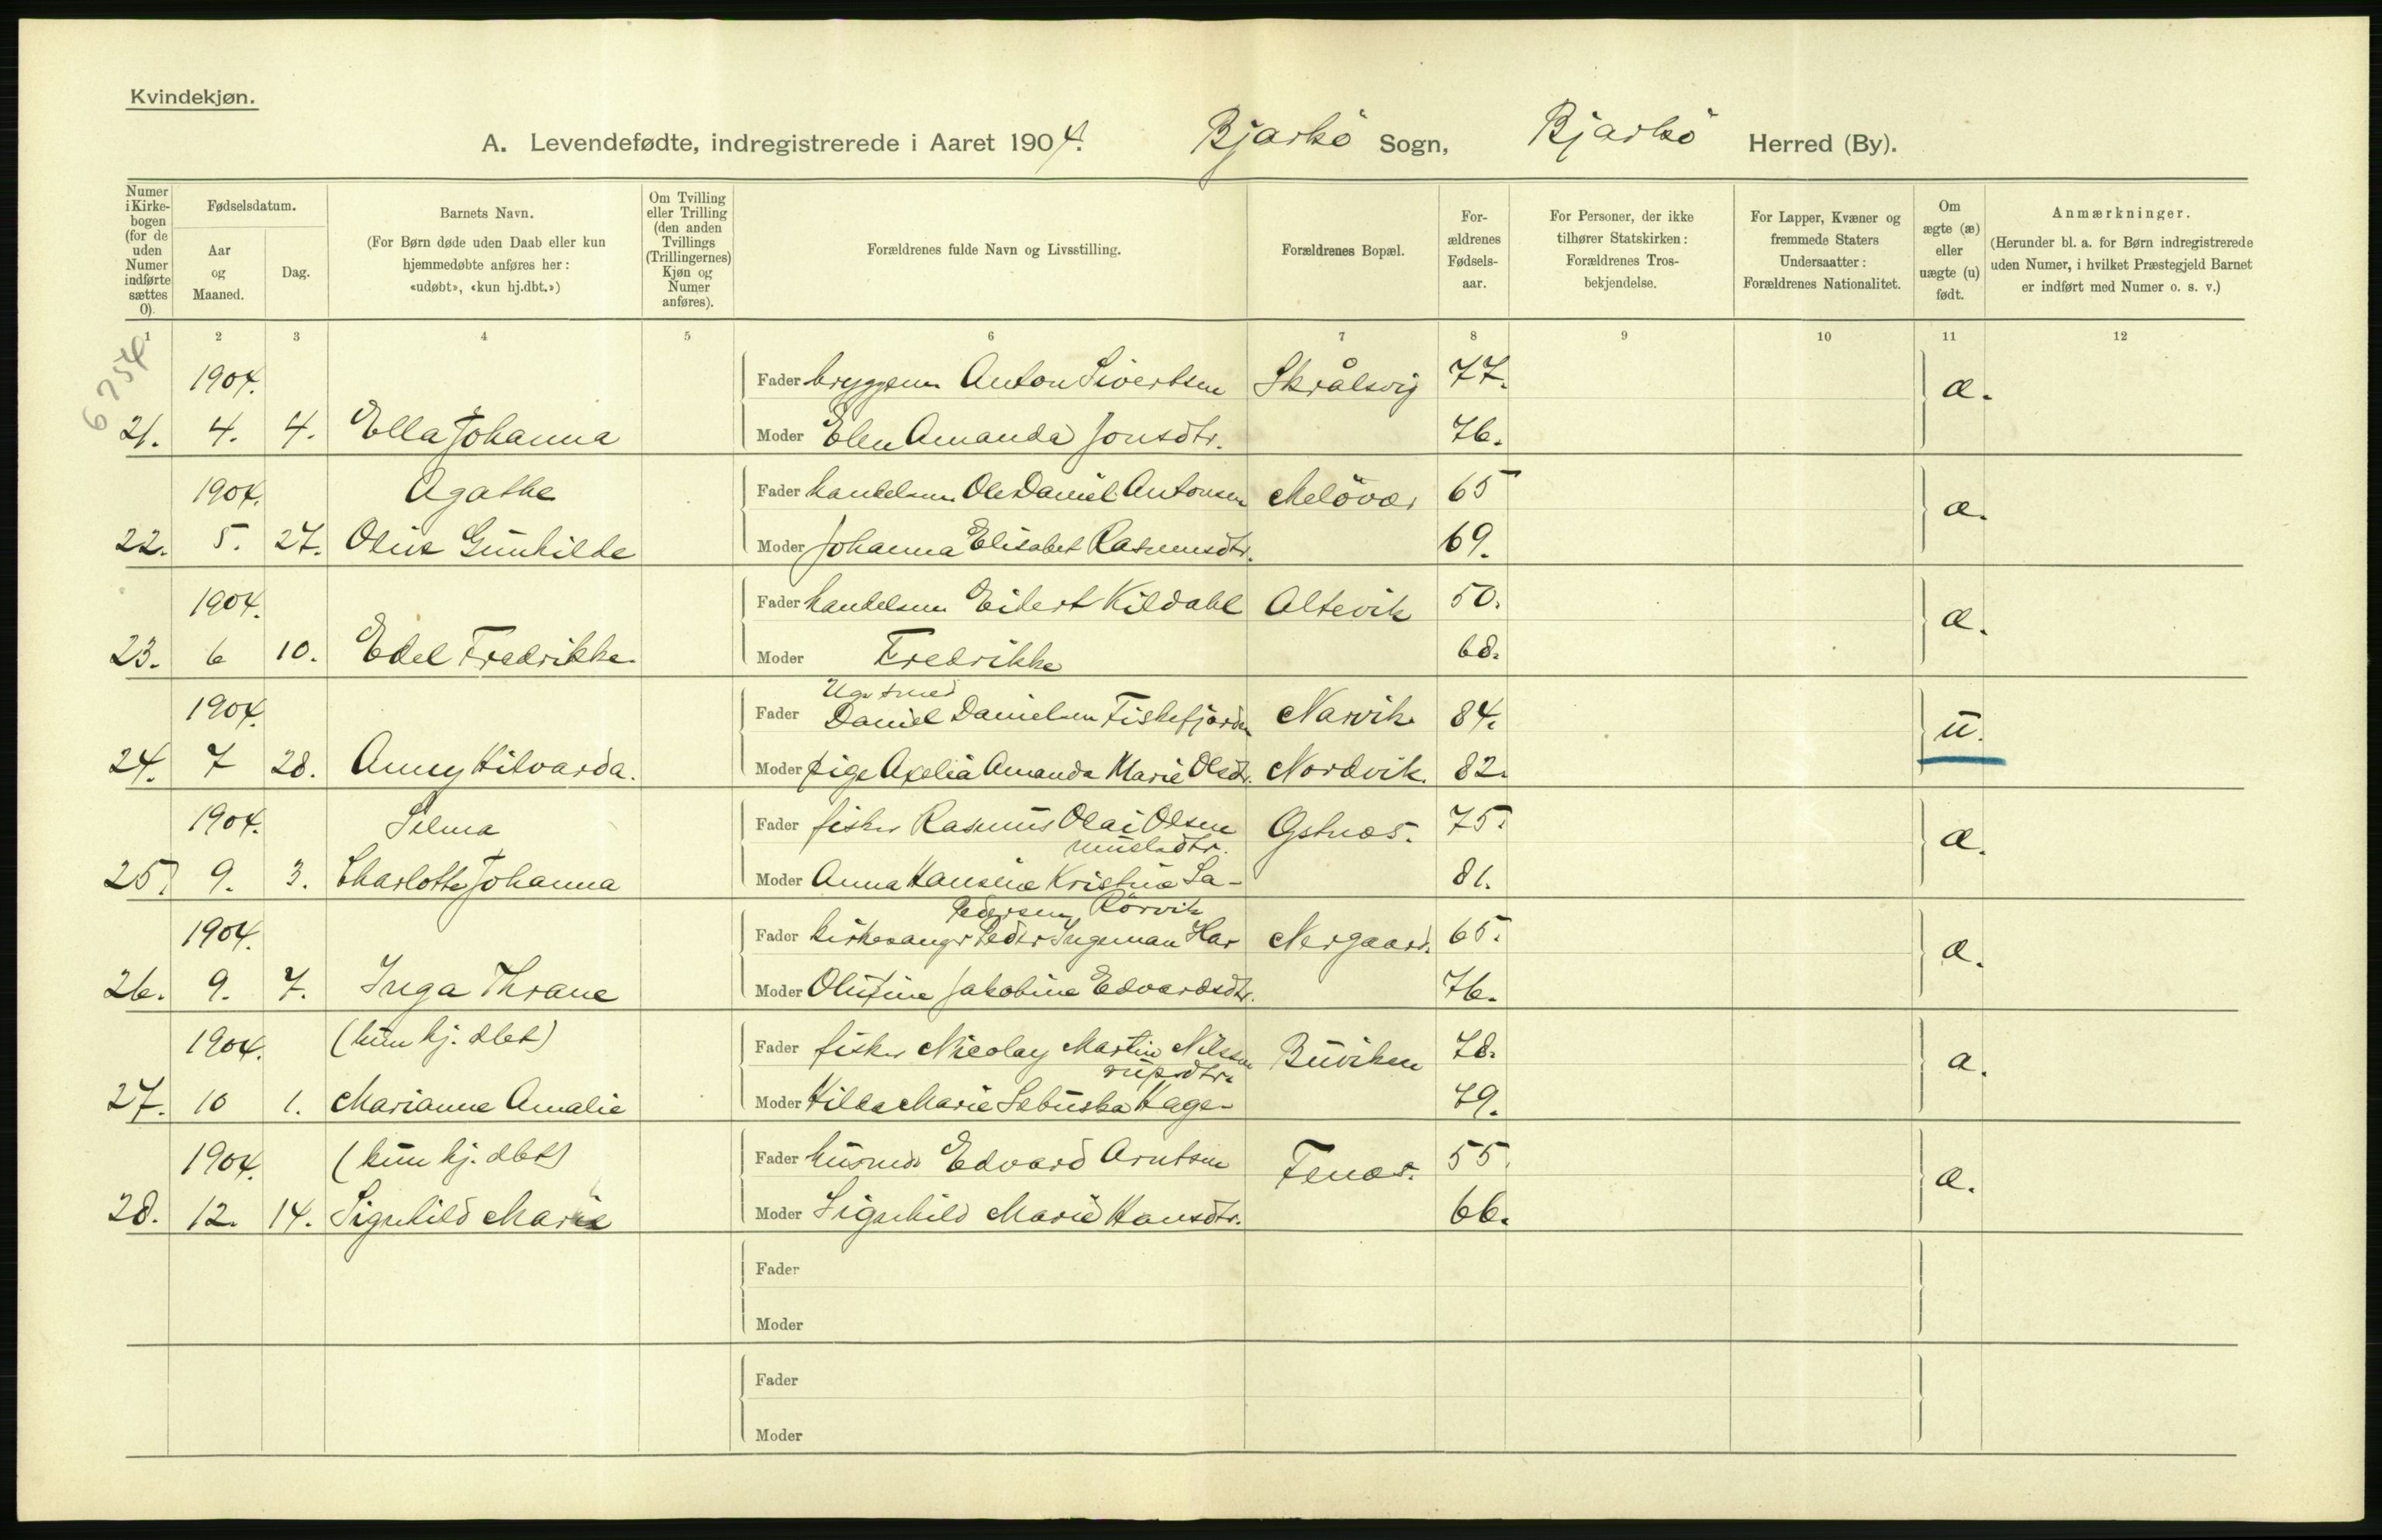 Kvindekjøn.
A. Levendefødte, indregistrerede i Aaret 1904. Bjarkö Sogn, Bjarkö Herred (By).
Numer i Kirkebogen (for de uden Numer indførte sættes 0).
Fødselsdatum.
Aar og Maaned.
Dag.
Barnets Navn.
(For Børn døde uden Daab eller kun hjemmedøbte anføres her: «udøbt», «kun hj.dbt.»)
Om Tvilling eller Trilling (den anden Tvillings (Trillingernes) Kjøn og Numer anføres).
Forældrenes fulde Navn og Livsstilling.
Forældrenes Bopæl.
Forældrenes Fødselsaar.
For Personer, der ikke tilhører Statskirken: Forældrenes Trosbekjendelse.
For Lapper, Kvæner og fremmede Staters Undersaatter: Forældrenes Nationalitet.
Om ægte (æ) eller uægte (u) født.
Anmærkninger.
(Herunder bl. a. for Børn indregistrerede uden Numer, i hvilket Præstegjeld Barnet er indført med Numer o. s. v.)
1 2 3 4 5 6 7 8 9 10 11 12
1904. Fader Anton Sivertsen Skrålsvig 77. æ.
21. 4. 4. Ella Johanna Moder Elen Amanda Jonsdtr. 76.
1904. Agathe Fader handelsm Ole Daniel Antonsen Melövær 65 æ.
22. 5. 27. Oline Gunhilde Moder Johanna Elisabet Rasmusdtr. 69.
1904. Fader handelsm Eilert Kildahl Altevik 50. æ.
23. 6 10. Edel Fredrikke Moder Fredrikke 68.
1904. Fader Daniel Danielsen Fiskefjorden Narvik 84. u.
24. 7 28. Anny Hilvarda. Moder pige Axelia Amanda Marie Olsdr. Nordvik. 82.
1904. Selma Fader fisker Rasmus Olai Olsen 75. æ.
muelsdtr.
25. 9. 3. Charlotte Johanna Moder Anna Hansine Kristine Sa- 81.
Pedersen Rörvik
1904. Fader kirkesanger Peder Ingeman Har Nergaard. 65. æ.
26. 9. 7. Inga Thrane Moder Olufine Jakobine Edvardsdtr. 76.
1904. (kun hj. dbt) Fader fisker Nicolay Martin Nilssen Buviken 78. æ.
rupsdtr.
27. 10 1. Marianne Amalie Moder Hilda Marie Hage- 79.
1904. (kun hj. dbt) Fader husmd. Edvard Arntsen Fenæs. 55. æ.
28. 12. 14. Signhild Marie Moder Signhild Marie Hansdtr. 66.
Fader
Moder
Fader
Moder